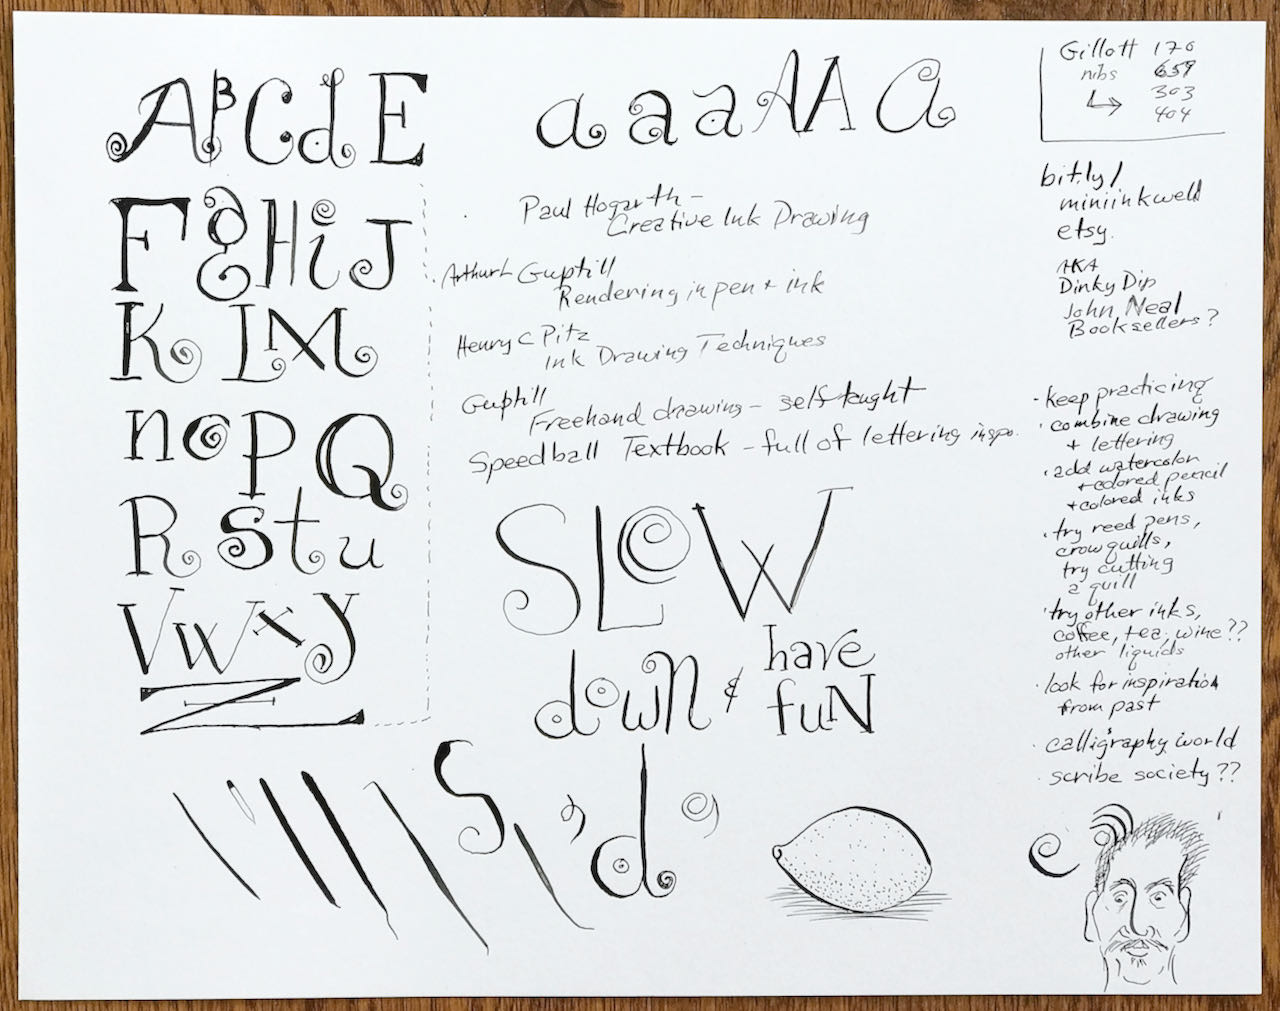 ABCdE
FgHiJ
K LM
noPQ
RStu
VWXY
Z
a a a A A a
Paul Hogarth –
Creative Ink Drawing
Arthur L Guptill
Rendering in pen + ink
Henry C Pitz
Ink Drawing Techniques
Guptill
Freehand drawing – self taught
Speedball Textbook – full of lettering inspo.
SLOW
down & have
fuN
S , d 9
Gillott 170
nibs 659
303
404
bit.ly/
miniinkwell
etsy.
AKA
Dinky Dip
John Neal
Booksellers?
· keep practicing
· combine drawing
+ lettering
· add watercolor
+ colored pencil
+ colored inks
· try reed pens,
crow quills,
try cutting
a quill
· try other inks,
coffee, tea, wine??
other liquids
· look for inspiration
from past
· calligraphy world
· scribe society??